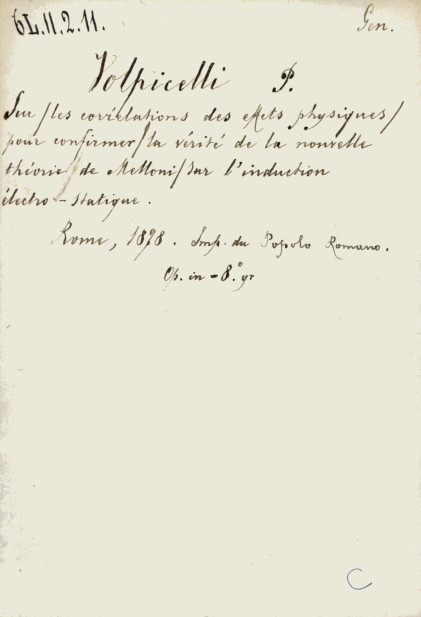 6L.11.2.11. Gen.
Volpicelli P.
Sur/les corrélations des effets physiques/
pour confirmer/la vérité de la nouvelle
théorie/de Melloni/sur l'induction
électro-statique.
Rome, 1878. Imp. du Popolo Romano.
Op. in-8.° gr
C